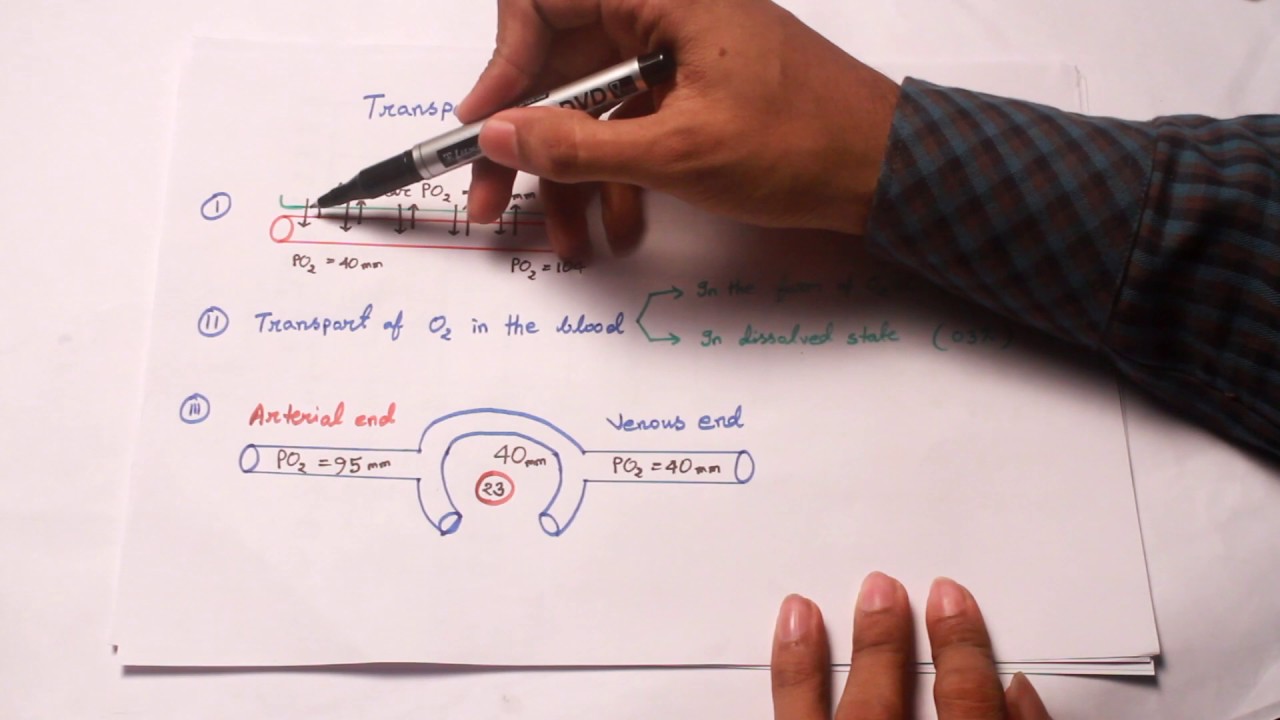 Transp
I
PO₂ =
mm
PO₂ = 40 mm
PO₂ = 104
II Transport of O₂ in the blood
In the form of
In dissolved state (03%)
III
Arterial end
Venous end
PO₂ = 95 mm
40 mm
PO₂ = 40 mm
23
DVD